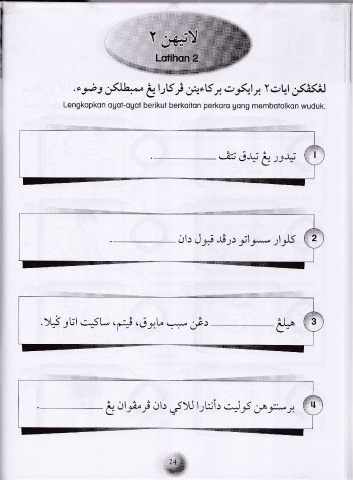 لاتيهن ٢
Latihan 2
لڠكڤكن ايات٢ برايكوت بركاءيتن ڤركارا يڠ ممبطلكن وضوء.
Lengkapkan ayat-ayat berikut berkaitan perkara yang membatalkan wuduk.
1 تيدور يڠ تيدق تتڤ ________.
2 كلوار سسواتو درڤد قبول دان ________.
3 هيلڠ ________ دڠن سبب مابوق، ڤيتم، ساكيت اتاو ݢيلا.
4 برسنتوهن كوليت دأنتارا للاكي دان ڤرمڤوان يڠ ________.
24